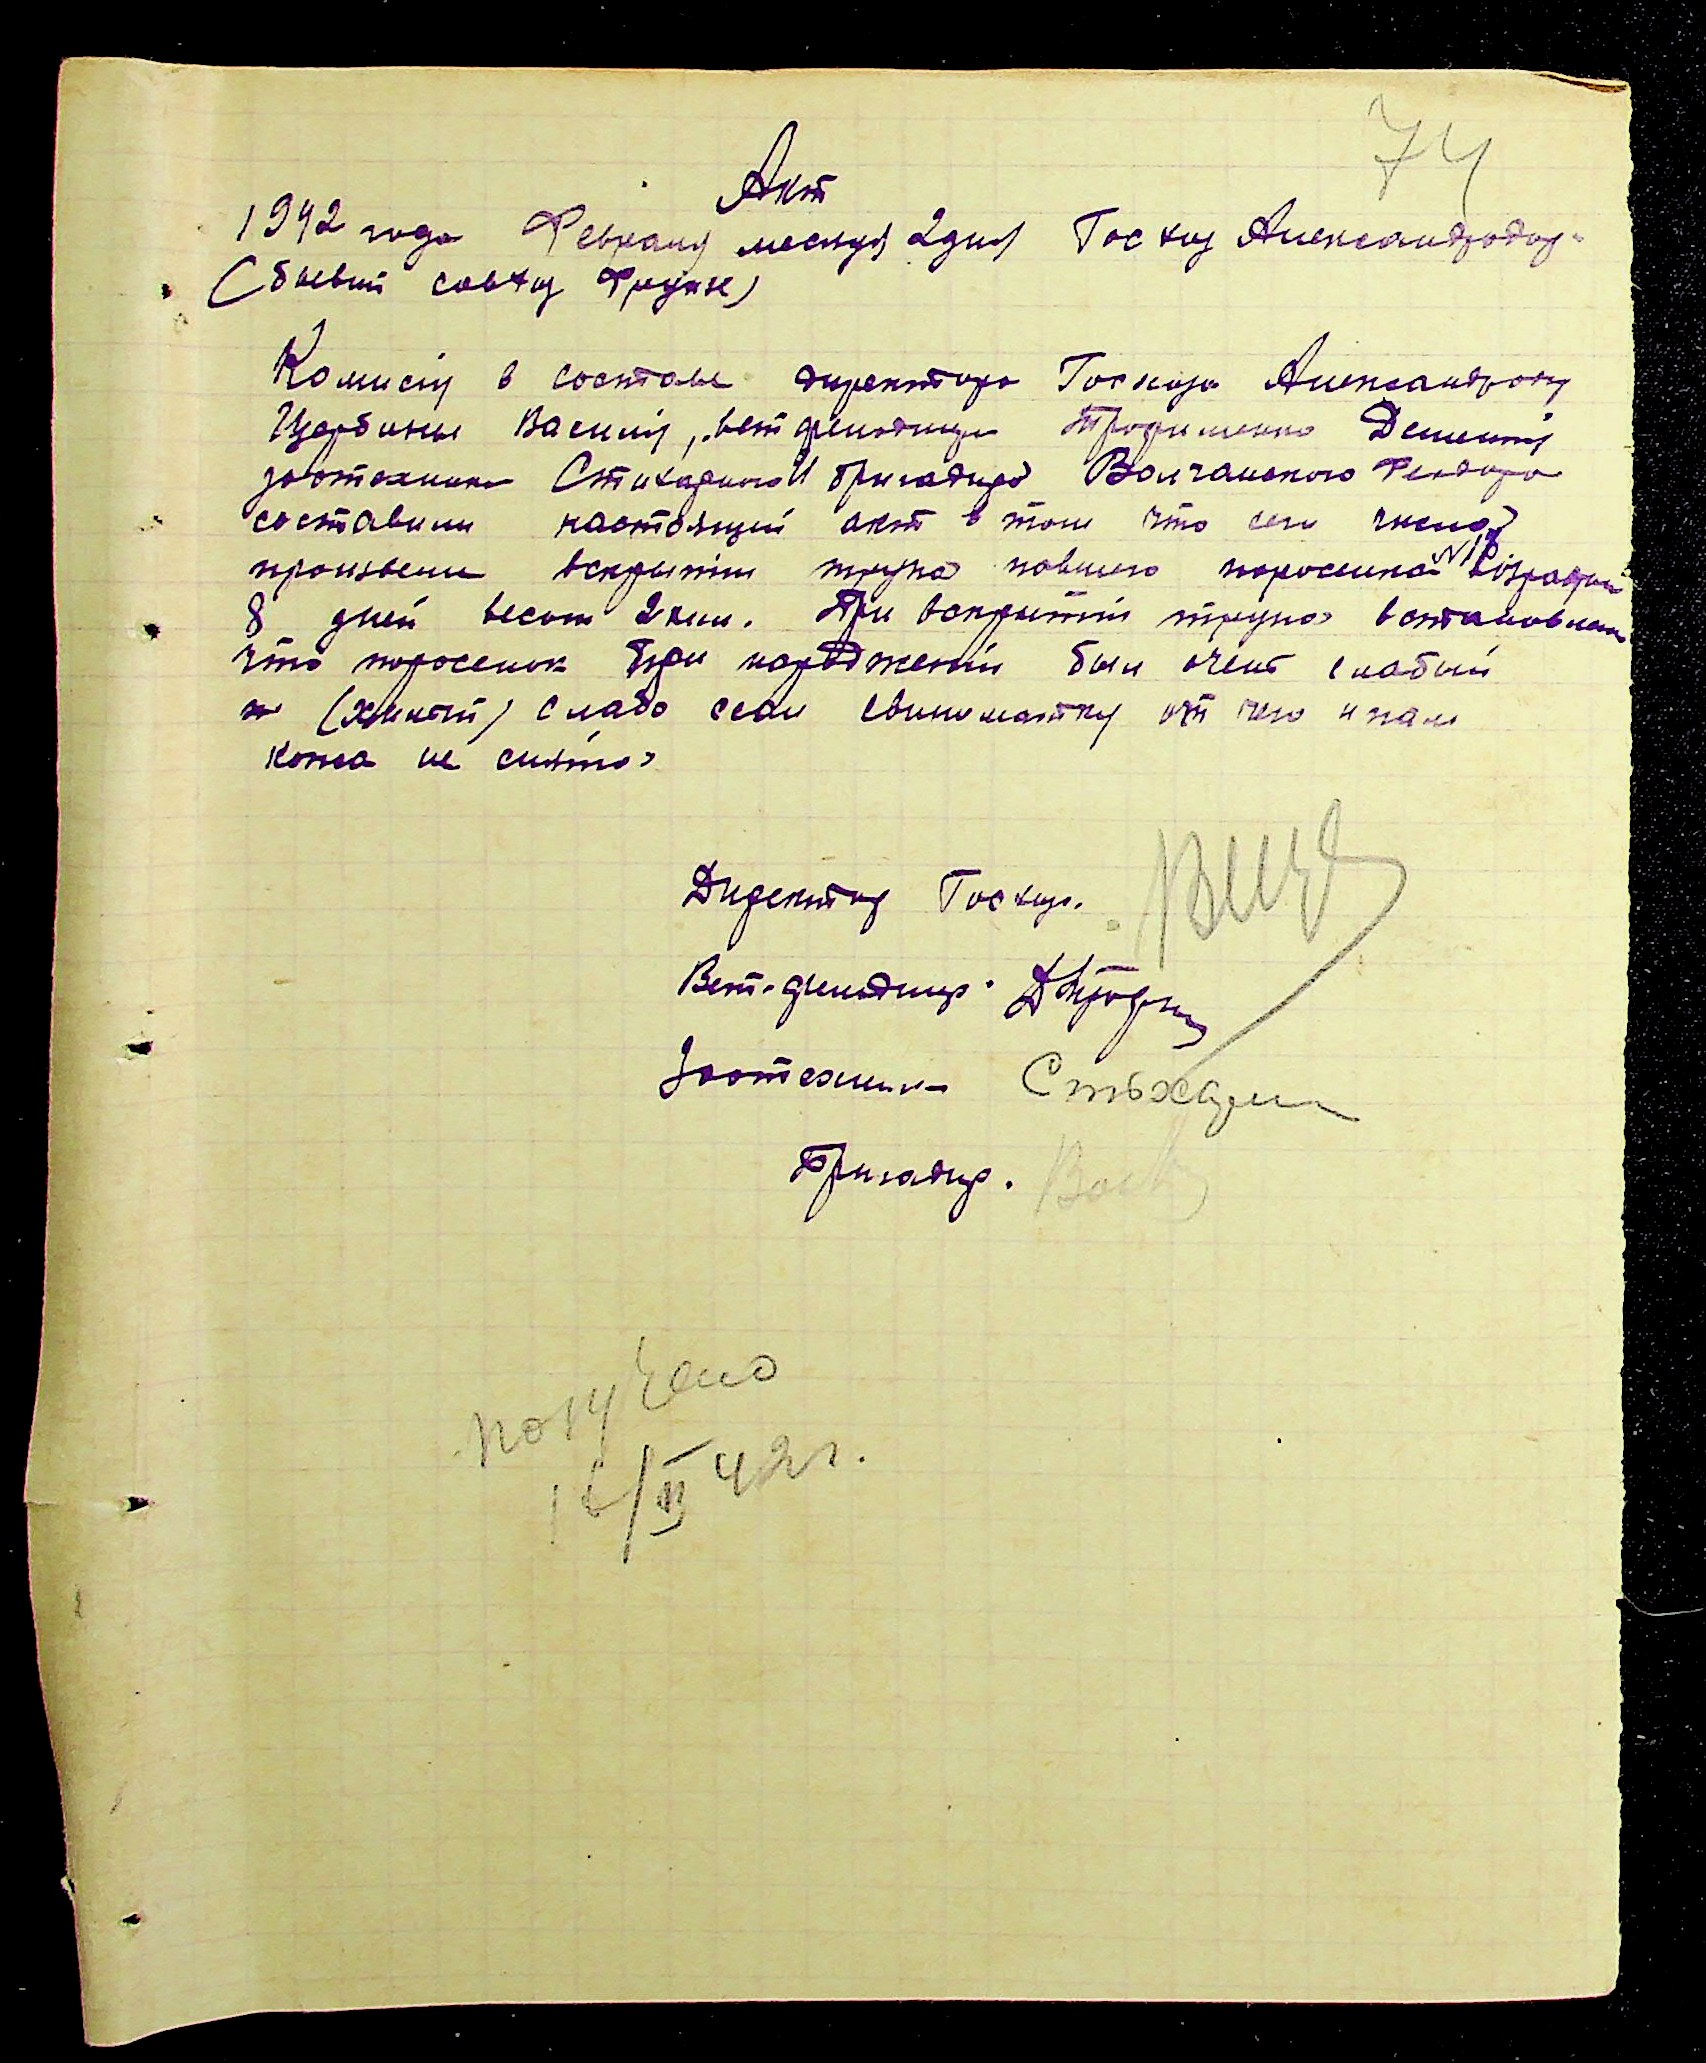 74
Акт
1942 года Февраля месяця 2 дня Госхоз Александродар-
(бывший совхоз Фрунзе)
Комисия в составе директора Госхоза Александродар
Щербины Василия, ветфельдшера Трофименко Дементия
зоотехника Стихарного И бригадира Волчанского Федора
составили настоящий акт в том что сего числа
произвели вскрытие трупа павшего поросенка №18 возрастом
8 дней весом 2 кил. При вскрытии трупа встановлено
что поросенок при нарождении был очень слабый
и слабо ссал свиноматку от чего и пал
кожа не снята
Директор Госхоза.
Вет. фельдшер. ДТрофим
Зоотехник Стихарн
Бригадир.
получено
16/II 42 г.